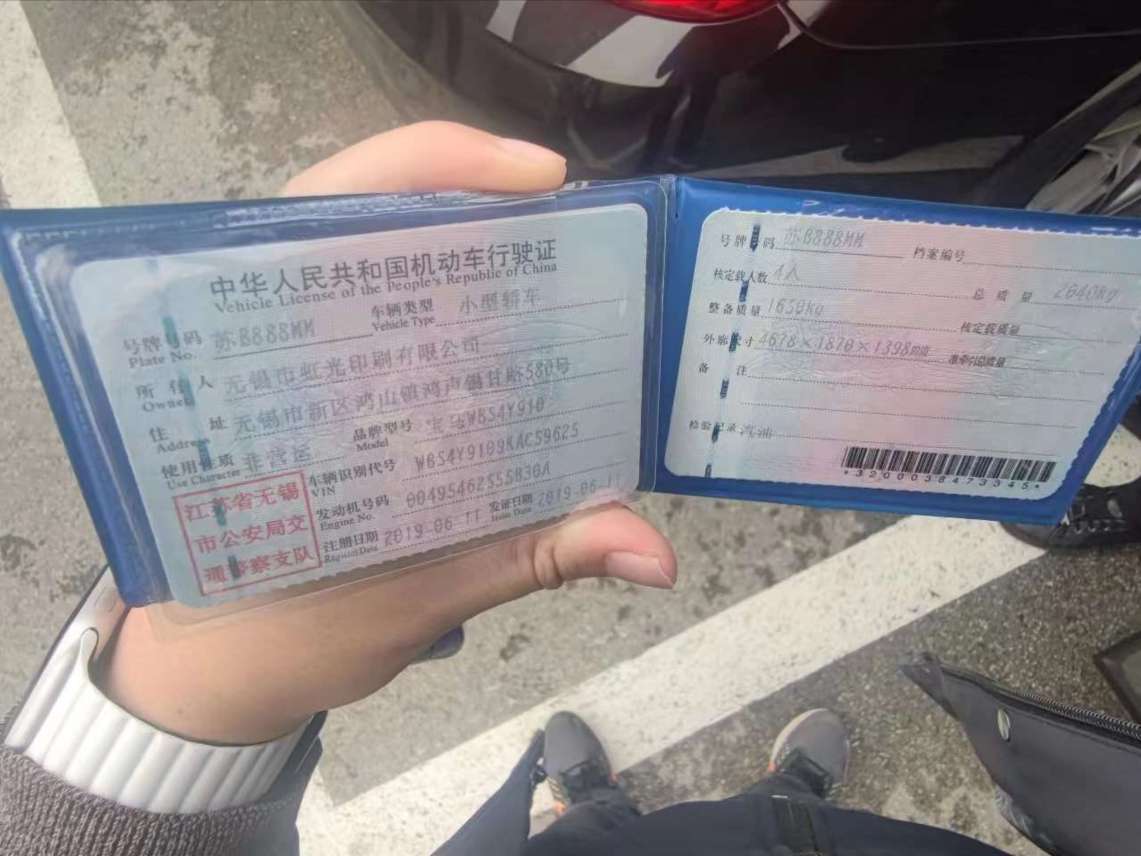 中华人民共和国机动车行驶证
Vehicle License of the People's Republic of China
号牌号码 苏B888MM 车辆类型 小型轿车
Plate No. Vehicle Type
所有人 无锡市虹光印刷有限公司
Owner
住址 无锡市新区鸿山镇鸿声锡甘路580号
Address
使用性质 非营运 品牌型号 宝马WBS4Y910
Use Character Model
车辆识别代号 WBS4Y9109KAC59625
VIN
发动机号码 00495462S55B30A
Engine No.
注册日期 2019-06-11 发证日期 2019-06-11
Register Date Issue Date
江苏省无锡
市公安局交
通警察支队
号牌号码 苏B888MM 档案编号
核定载人数 4人 总质量 2040kg
整备质量 1650kg 核定载质量
外廓尺寸 4678×1870×1398mm 准牵引总质量
备注
检验记录 汽油
*3200058473345*